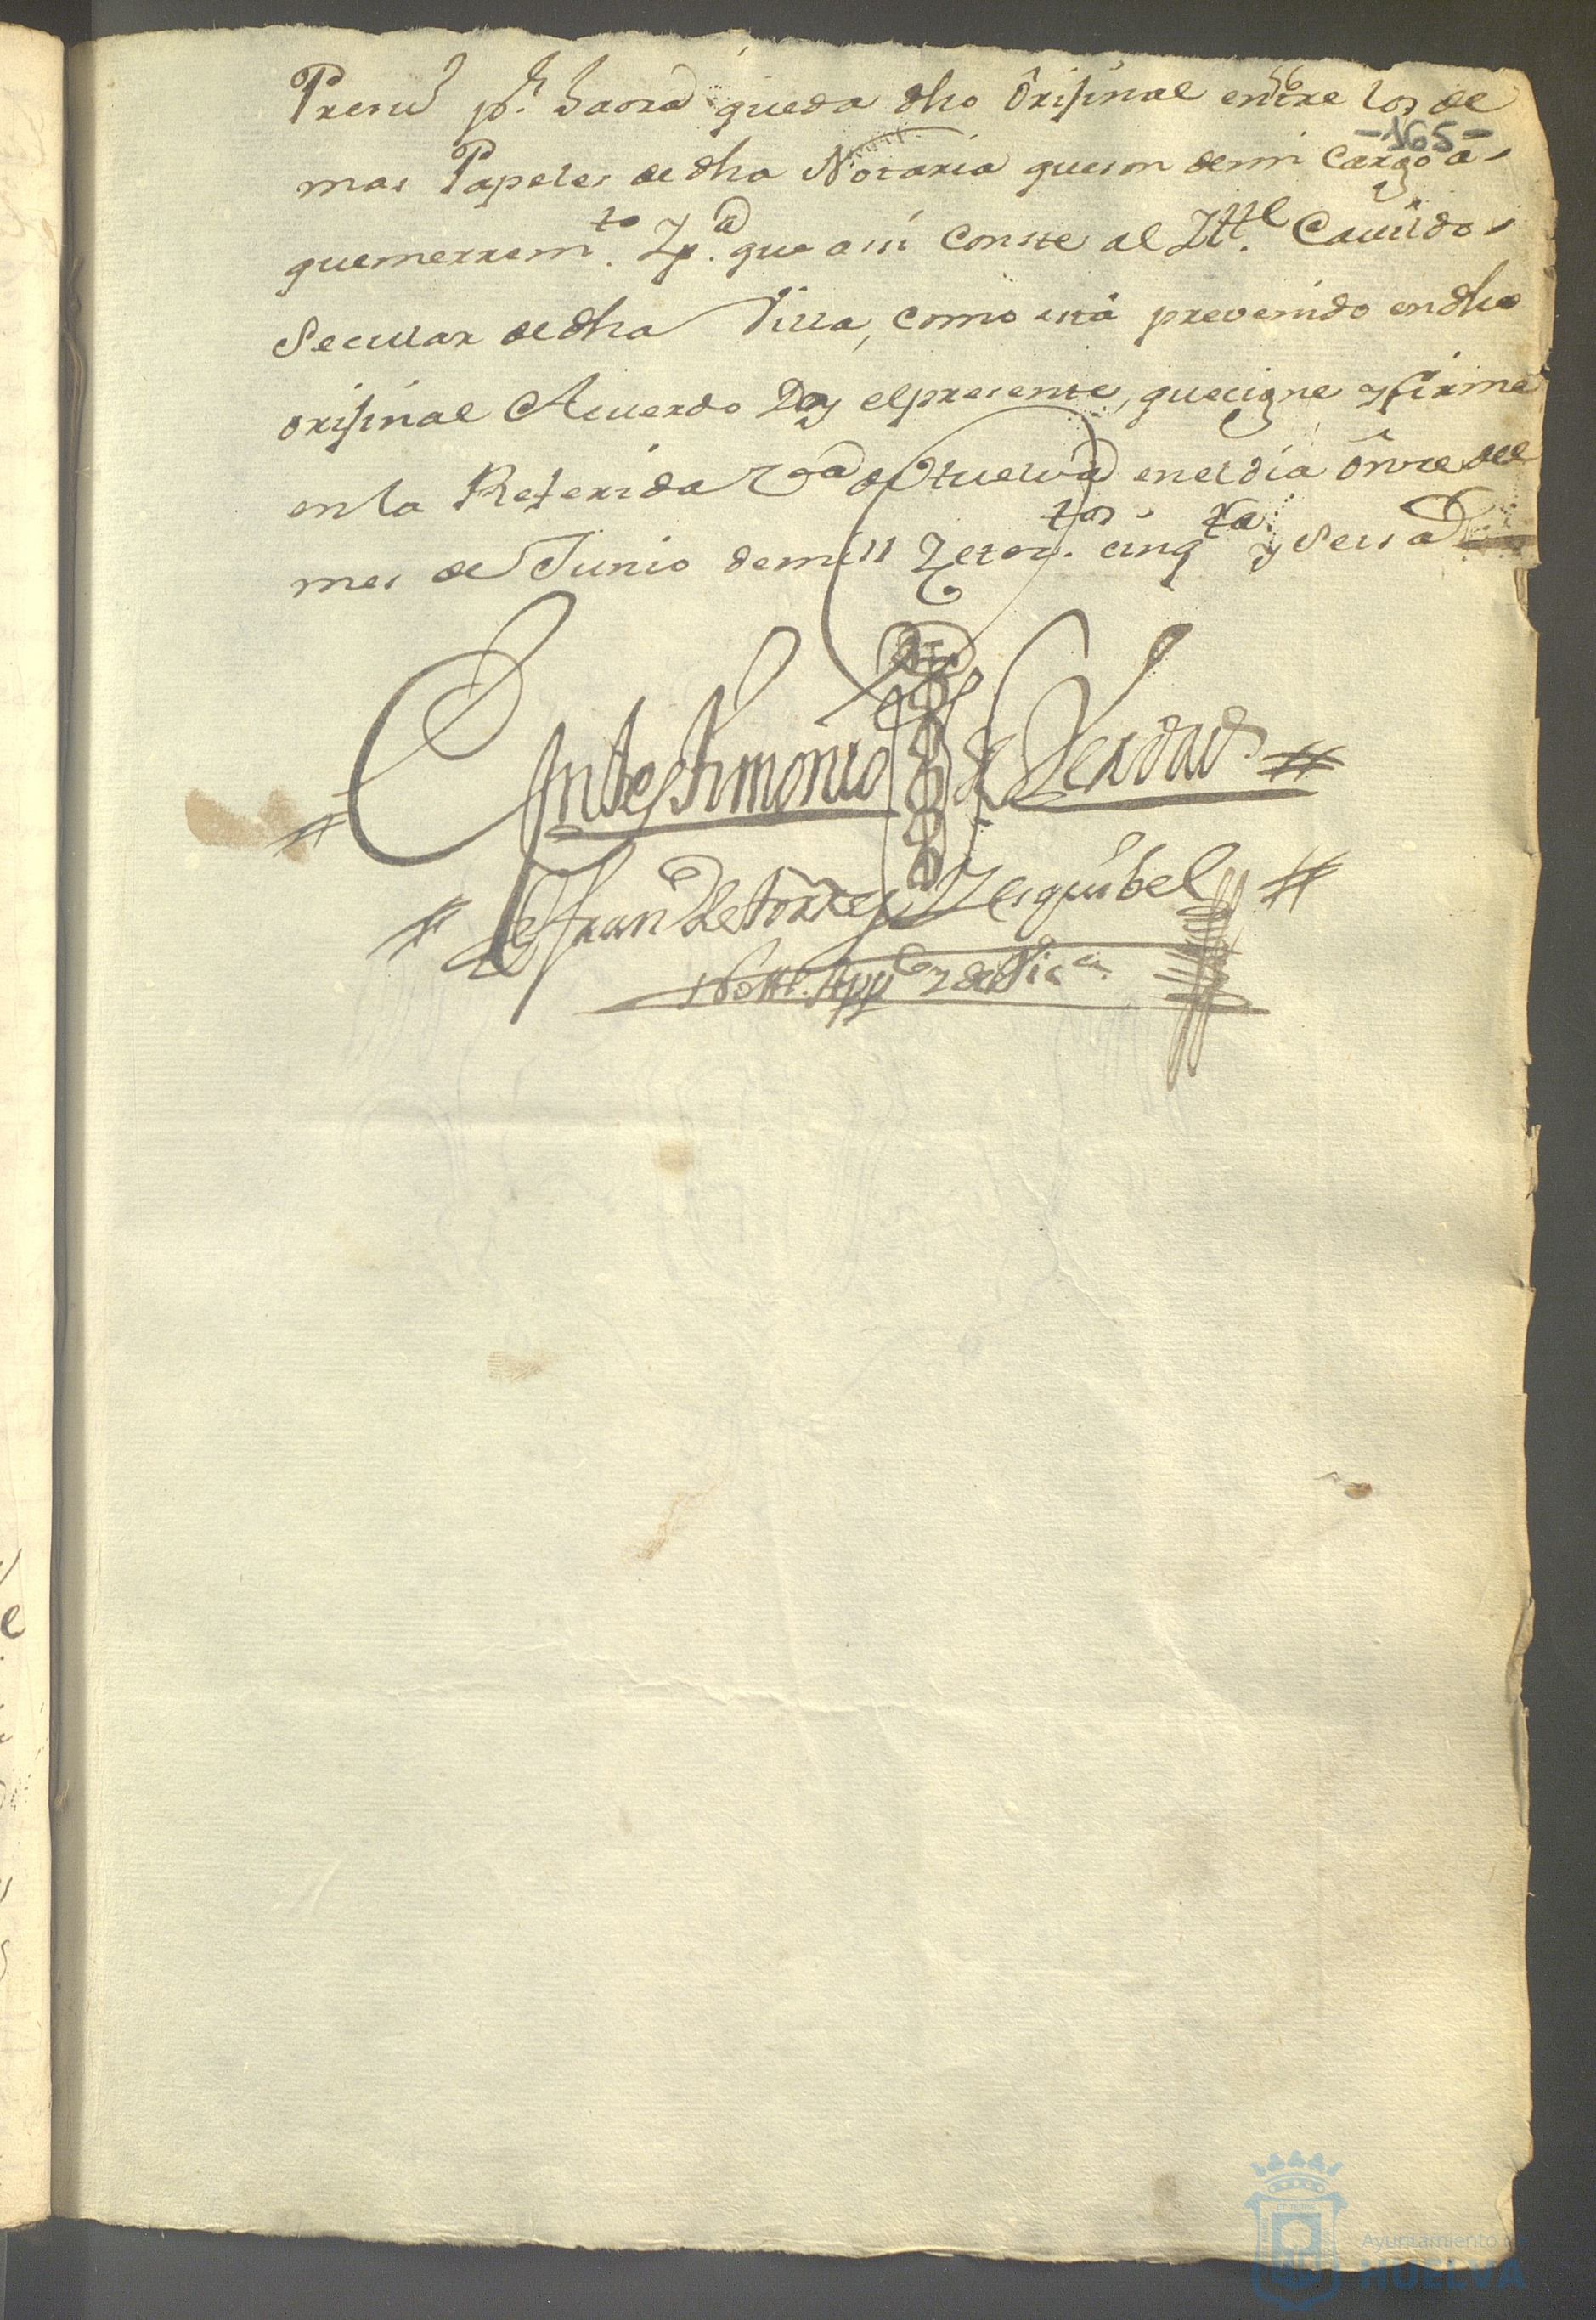 Presu p.r haora queda dho Original entre los de
56
-165-
mas Papeles de dha Notaria que son de mi Cargo a
que me rrem.to Y p.a que assi Conste al Ill.e Cavildo
Secular de dha Villa, como esta prevenido en dho
original Acuerdo Doy el presente, que signe y firme
en la Referida V.a de Huelva en el dia onze del
mes de Junio de mill Setez.tos cinq.ta y Seis a.s
En testimonio de Verdad
Fran de Torres Y esquibel
Nott. App.co y de Vic.a
Ayuntamiento de
HUELVA